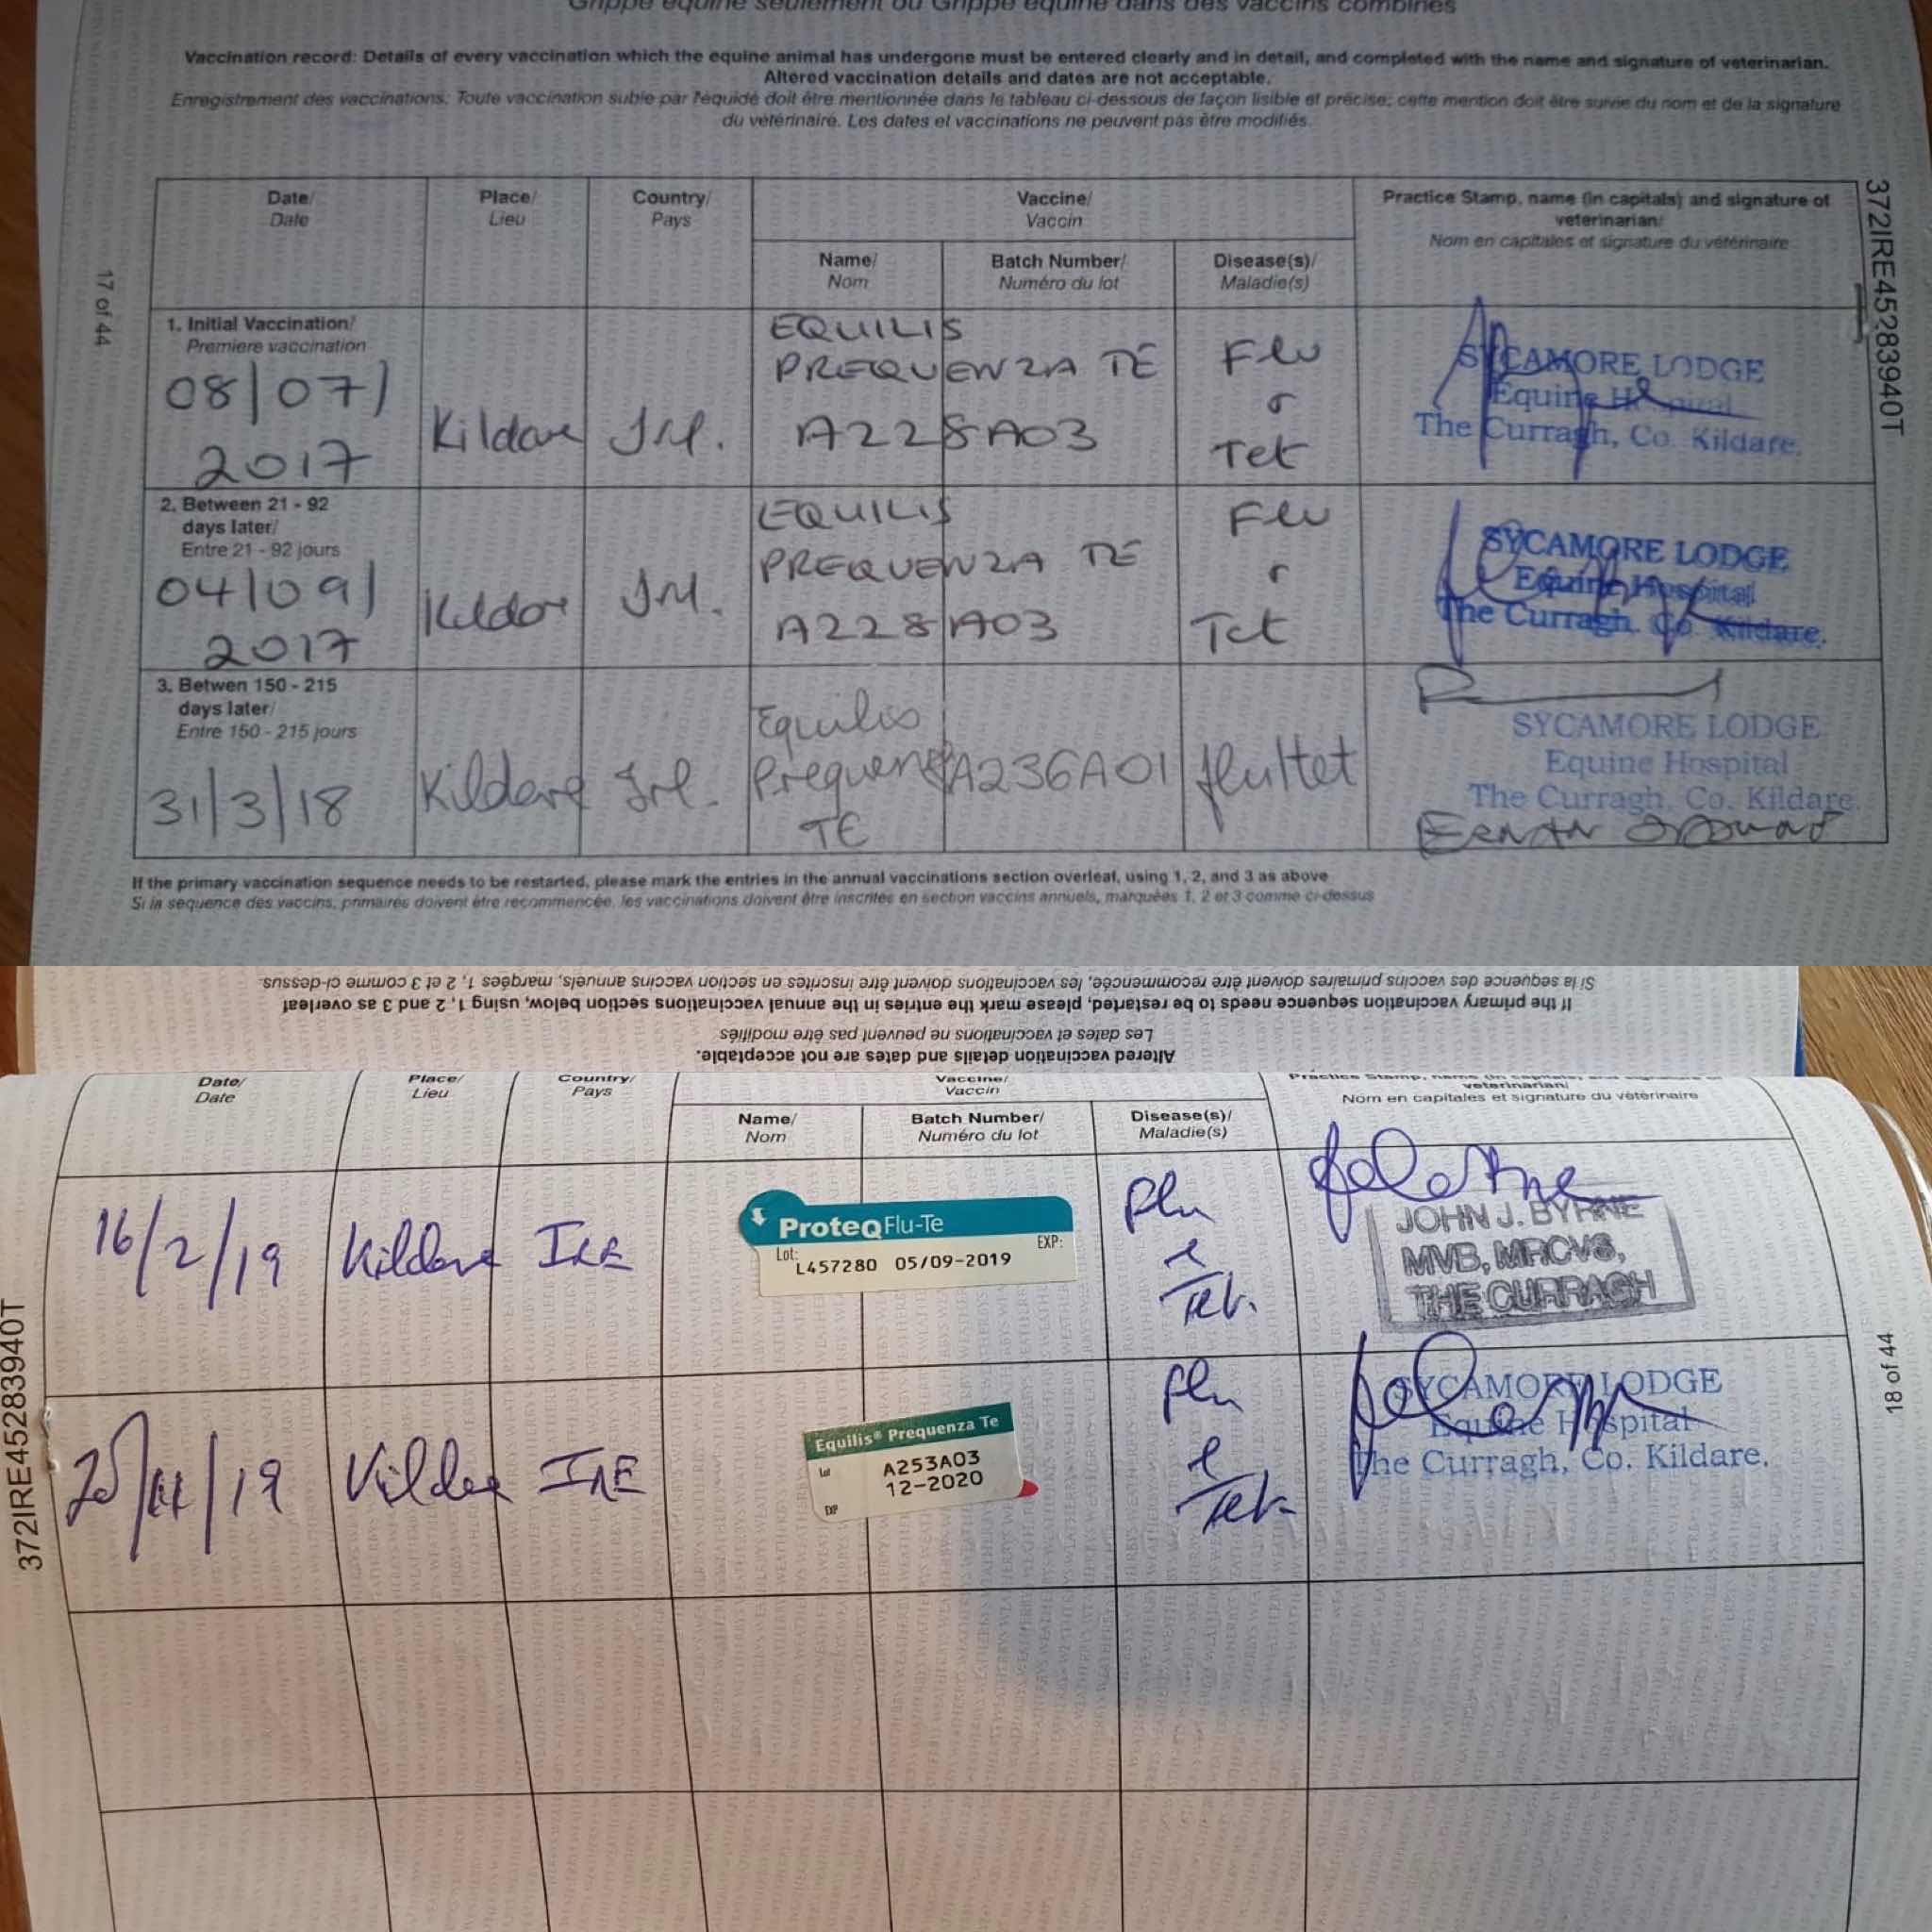 Grippe équine seulement ou Grippe équine dans des vaccins combinés
Vaccination record: Details of every vaccination which the equine animal has undergone must be entered clearly and in detail, and completed with the name and signature of veterinarian.
Altered vaccination details and dates are not acceptable.
Enregistrement des vaccinations: Toute vaccination subie par l'équidé doit être mentionnée dans le tableau ci-dessous de façon lisible et précise; cette mention doit être suivie du nom et de la signature
du vétérinaire. Les dates et vaccinations ne peuvent pas être modifiés.
17 of 44
372IRE45283940T
Date/ Place/ Country/ Vaccine/ Practice Stamp, name (in capitals) and signature of
Date Lieu Pays Vaccin veterinarian/
Nom en capitales et signature du vétérinaire
Name/ Batch Number/ Disease(s)/
Nom Numéro du lot Maladie(s)
1. Initial Vaccination/
Premiere vaccination
08/07/
2017
Kildare
Irl.
EQUILIS
PREQUENZA TE
A228A03
Flu
Tet
SYCAMORE LODGE
Equine Hospital
The Curragh, Co. Kildare.
2. Between 21 - 92
days later/
Entre 21 - 92 jours
04/09/
2017
Irl.
EQUILIS
PREQUENZA TE
A228A03
Flu
Tet
SYCAMORE LODGE
Equine Hospital
The Curragh, Co. Kildare.
3. Betwen 150 - 215
days later/
Entre 150 - 215 jours
31/3/18
Kildare
Irl.
Equilis
TE
A236A01
flu/tet
SYCAMORE LODGE
Equine Hospital
The Curragh, Co. Kildare.
If the primary vaccination sequence needs to be restarted, please mark the entries in the annual vaccinations section overleaf, using 1, 2, and 3 as above
Si la sequence des vaccins, primaires doivent être recommencée, les vaccinations doivent être inscrites en section vaccins annuels, marquées 1, 2 et 3 comme ci-dessus
Si la sequence des vaccins primaires doivent être recommencée, les vaccinations doivent être inscrites en section vaccins annuels, marquées 1, 2 et 3 comme ci-dessus.
If the primary vaccination sequence needs to be restarted, please mark the entries in the annual vaccinations section below, using 1, 2 and 3 as overleaf
Les dates et vaccinations ne peuvent pas être modifiés
Altered vaccination details and dates are not acceptable.
Date/ Place/ Country/ Vaccine/
Date Lieu Pays Vaccin veterinarian/
Nom en capitales et signature du vétérinaire
Name/ Batch Number/ Disease(s)/
Nom Numéro du lot Maladie(s)
16/2/19
Kildare
IRE
ProteqFlu-Te
Lot: EXP:
L457280 05/09-2019
Flu
Tet.
JOHN J. BYRNE
MVB, MRCVS,
THE CURRAGH
/19
IRE
Equilis® Prequenza Te
Lot A253A03
12-2020
EXP
Flu
Tet.
SYCAMORE LODGE
Equine Hospital
The Curragh, Co. Kildare.
372IRE45283940T
18 of 44